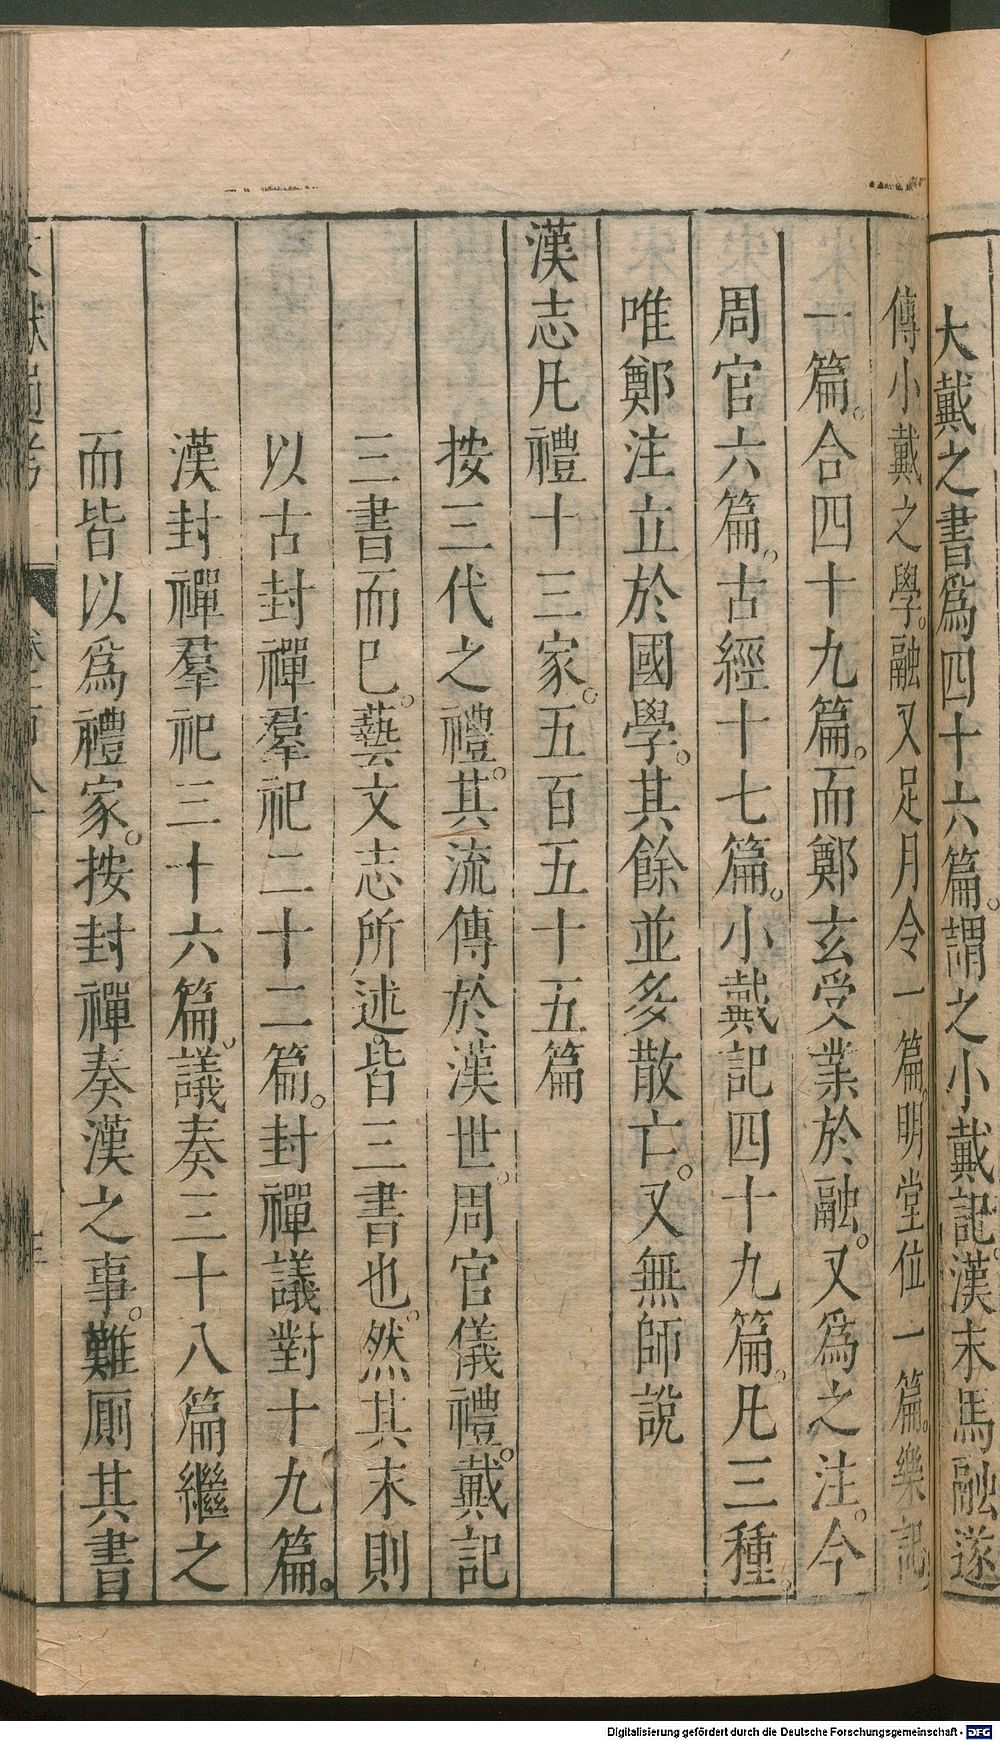 大戴之書爲四十六篇。謂之小戴記。漢末馬融遂
傳小戴之學。融又足月令一篇。明堂位一篇。樂記
一篇。合四十九篇。而鄭玄受業於融。又爲之注。今
周官六篇。古經十七篇。小戴記四十九篇。凡三種。
唯鄭注立於國學。其餘並多散亡。又無師說
漢志凡禮十三家。五百五十五篇
按三代之禮。其流傳於漢世。周官儀禮。戴記
三書而已。藝文志所述。皆三書也。然其末則
以古封禪羣祀二十二篇。封禪議對十九篇。
漢封禪羣祀三十六篇。議奏三十八篇繼之
而皆以爲禮家。按封禪奏漢之事。難厠其書
Digitalisierung gefördert durch die Deutsche Forschungsgemeinschaft - DFG